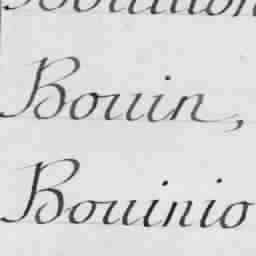 Bouin,
Bouinio